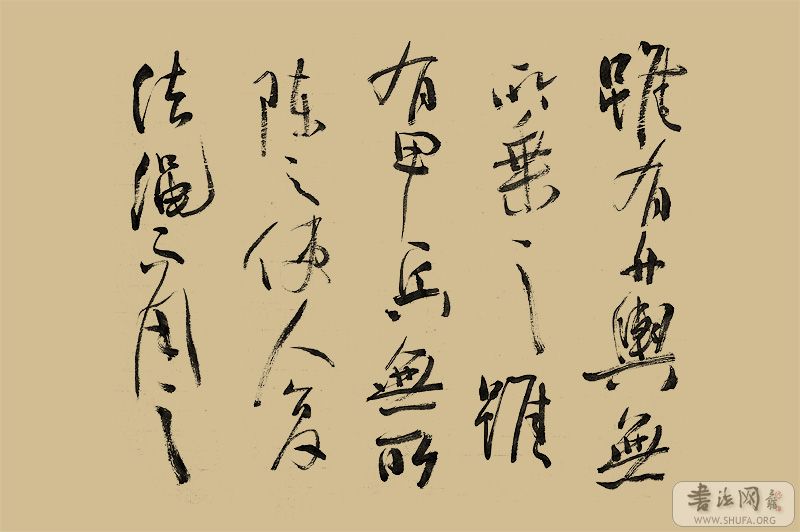 雖有舟輿無
所乘之雖
有甲兵無所
陈之使人复
结绳而用之
書法网
WWW.SHUFA.ORG